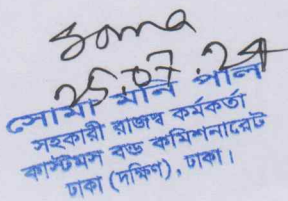 Soma
25.07.24
সোমা মনি পাল
সহকারী রাজস্ব কর্মকর্তা
কাস্টমস বন্ড কমিশনারেট
ঢাকা (দক্ষিণ), ঢাকা।